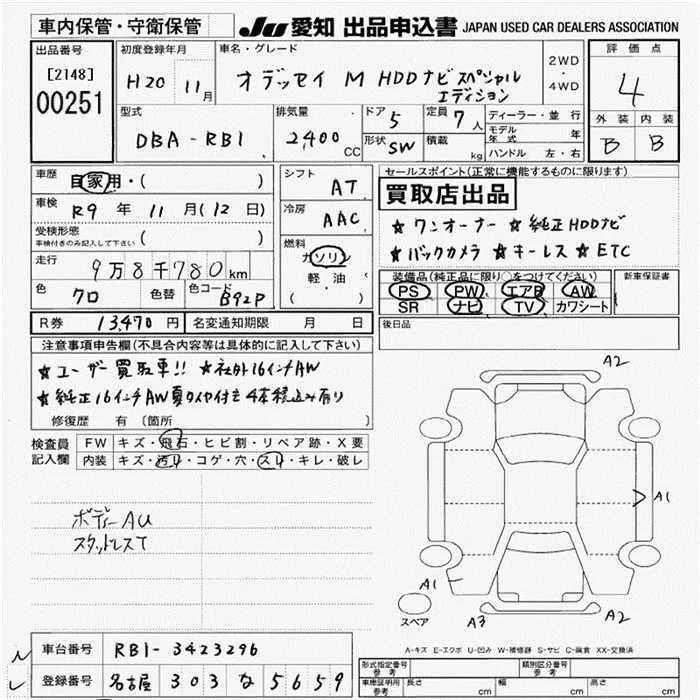 車内保管・守衛保管 JU 愛知 出品申込書 JAPAN USED CAR DEALERS ASSOCIATION
出品番号 初度登録年月 車名・グレード 2WD・4WD 評価点
[2148] H20 11月 オデッセイ M HDDナビスペシャル
00251 エディション 4
型式 排気量 ドア 5 定員 7人 ディーラー・並行 外装 内装
DBA-RB1 2,400CC 形状 SW 積載 kg モデル年式 年 B B
ハンドル 左・右
車歴 自家用・( ) シフト AT セールスポイント(正常に機能するものに限ります)
車検 R9年 11月(12日) 冷房 AAC 買取店出品
受検形態 ( ) ☆ワンオーナー ☆純正HDDナビ
車検付きのみ記入して下さい 燃料 ガソリン ☆バックカメラ ☆キーレス ☆ETC
走行 9万8千780km 軽・油 装備品(純正品に限り○をつけてください) 新車保証書
色 クロ 色替 色コード B92P ( ) PS PW エアB AW
SR ナビ TV カワシート
R券 13,470円 名変通知期限 月 日 後日品
注意事項申告欄(不具合内容等は具体的に記入して下さい)
☆ユーザー買取車!! ☆社外16インチAW
☆純正16インチAW夏タイヤ付き4本積込み有り
修復歴 有 〔箇所 〕
検査員 FW キズ・飛石・ヒビ割・リペア跡・X要
記入欄 内装 キズ・汚れ・コゲ・穴・スレ・キレ・破レ
A2
A1
ボディーAU
スタットレスT
A1
スペア A3 A2
A-キズ E-エクボ U-凹み W-補修跡 S-サビ C-腐食 XX-交換済
車台番号 RB1-3423296 形式指定番号 参考 類別区分番号 参考
登録番号 名古屋 303 な 5659 車庫証明用 参考 長さ cm 幅 cm 高さ cm